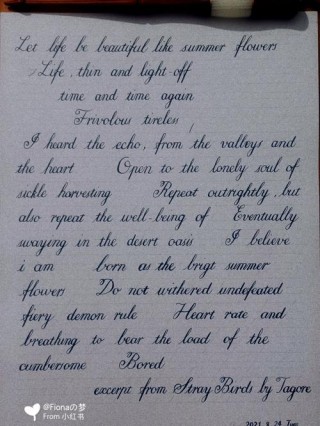 Let life be beautiful like summer flowers
Life, thin and light-off
time and time again
Frivolous tireless
I heard the echo, from the valleys and
the heart Open to the lonely soul of
sickle harvesting Repeat outrightly, but
also repeat the well-being of Eventually
swaying in the desert oasis I believe
i am born as the brigt summer
flowers Do not withered undefeated
fiery demon rule Heart rate and
breathing to bear the load of the
cumbersome Bored
excerpt from Stray Birds by Tagore
2021.8.24 Tues
@Fionaの梦
From 小红书